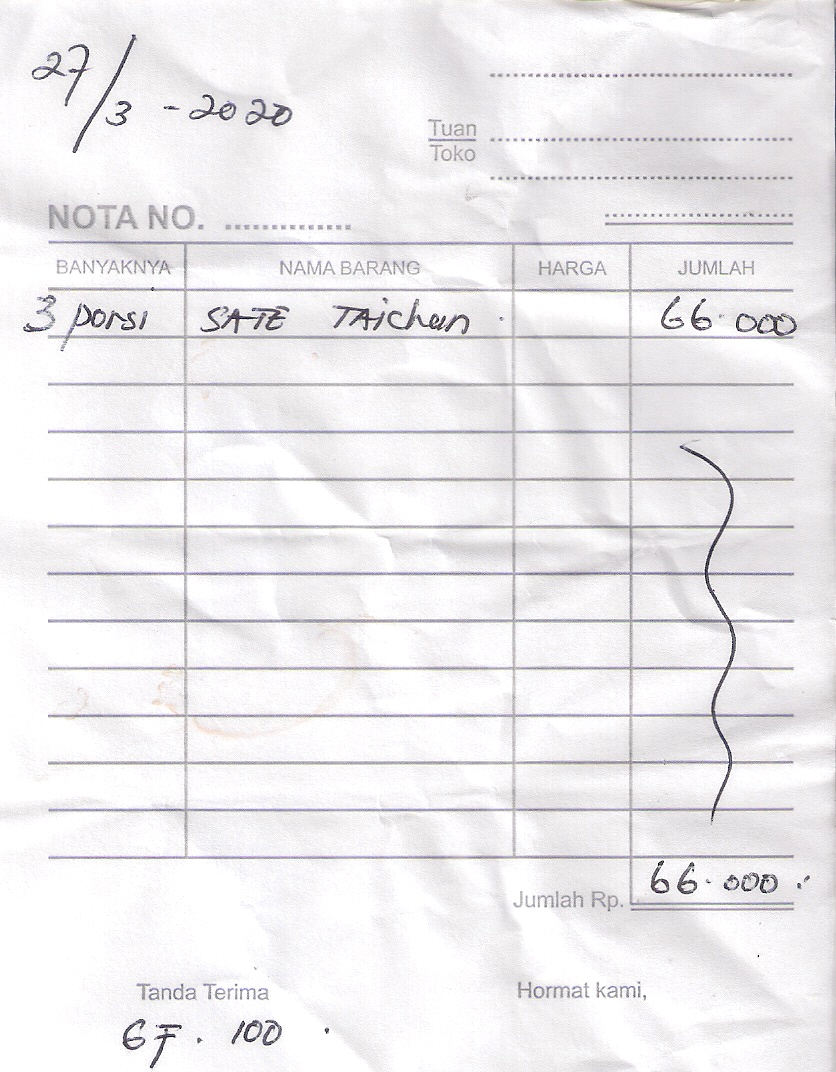 27/3 - 2020
Tuan
Toko
NOTA NO. ..................
BANYAKNYA NAMA BARANG HARGA JUMLAH
3 porsi SATE TAichan 66.000
Jumlah Rp. 66.000
Tanda Terima Hormat kami,
GF. 100